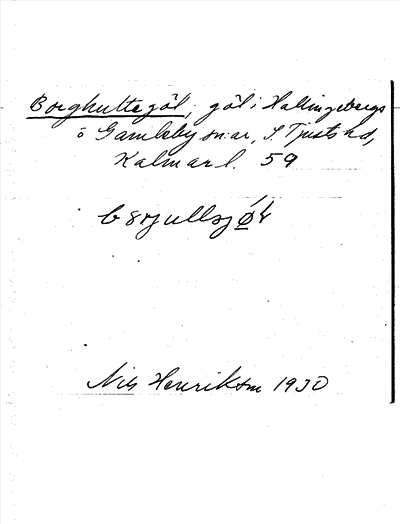 Borghultegöl, göl i Hallingebergs
o Gamleby sn:ar, S. Tjusts hd,
Kalmar l. 59
Nils Henriksson 1930